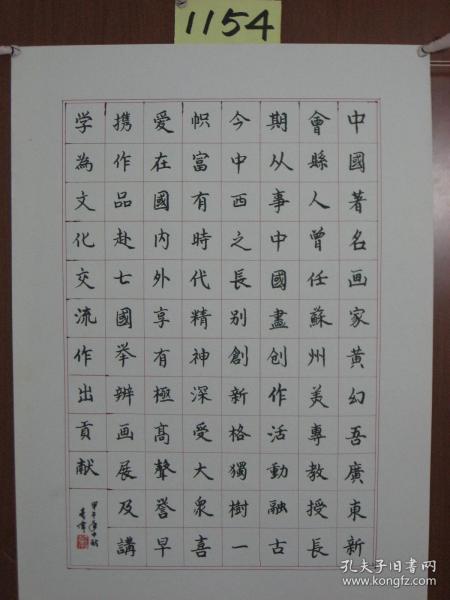 1154
中國著名画家黃幻吾廣東新
會縣人曾任蘇州美專教授長
期从事中國畫创作活動融古
今中西之長别創新格獨樹一
帜富有時代精神深受大衆喜
愛在國内外享有極高聲誉早
携作品赴七國举辦画展及講
学為文化交流作出貢献
孔夫子旧書网